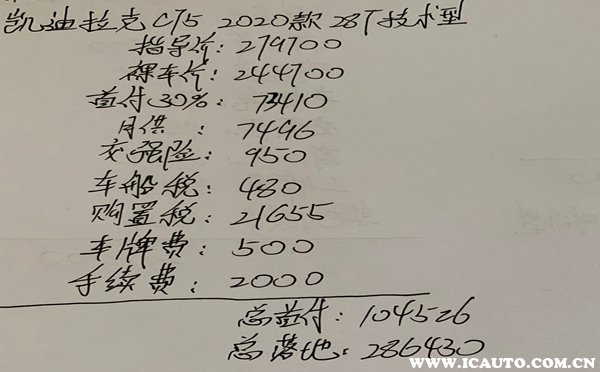 凯迪拉克CT5 2020款 28T技术型
指导价: 279700
裸车价: 244700
首付30%: 73410
月供: 7496
交强险: 950
车船税: 480
购置税: 21655
车牌费: 500
手续费: 2000
总首付: 104526
总落地: 286430
www.icauto.com.cn